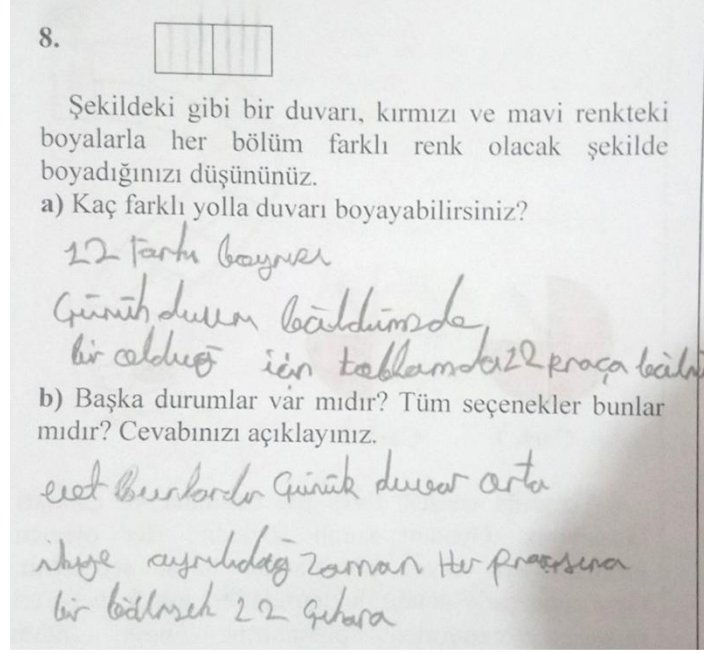 8.
Şekildeki gibi bir duvarı, kırmızı ve mavi renkteki
boyalarla her bölüm farklı renk olacak şekilde
boyadığınızı düşününüz.
a) Kaç farklı yolla duvarı boyayabilirsiniz?
12
Günük duvar
bir olduğ için toblamda 12 praça
b) Başka durumlar var mıdır? Tüm seçenekler bunlar
mıdır? Cevabınızı açıklayınız.
evet bunlardır Günük duvar orta
ayrıldığ zaman Her praçasına
bir